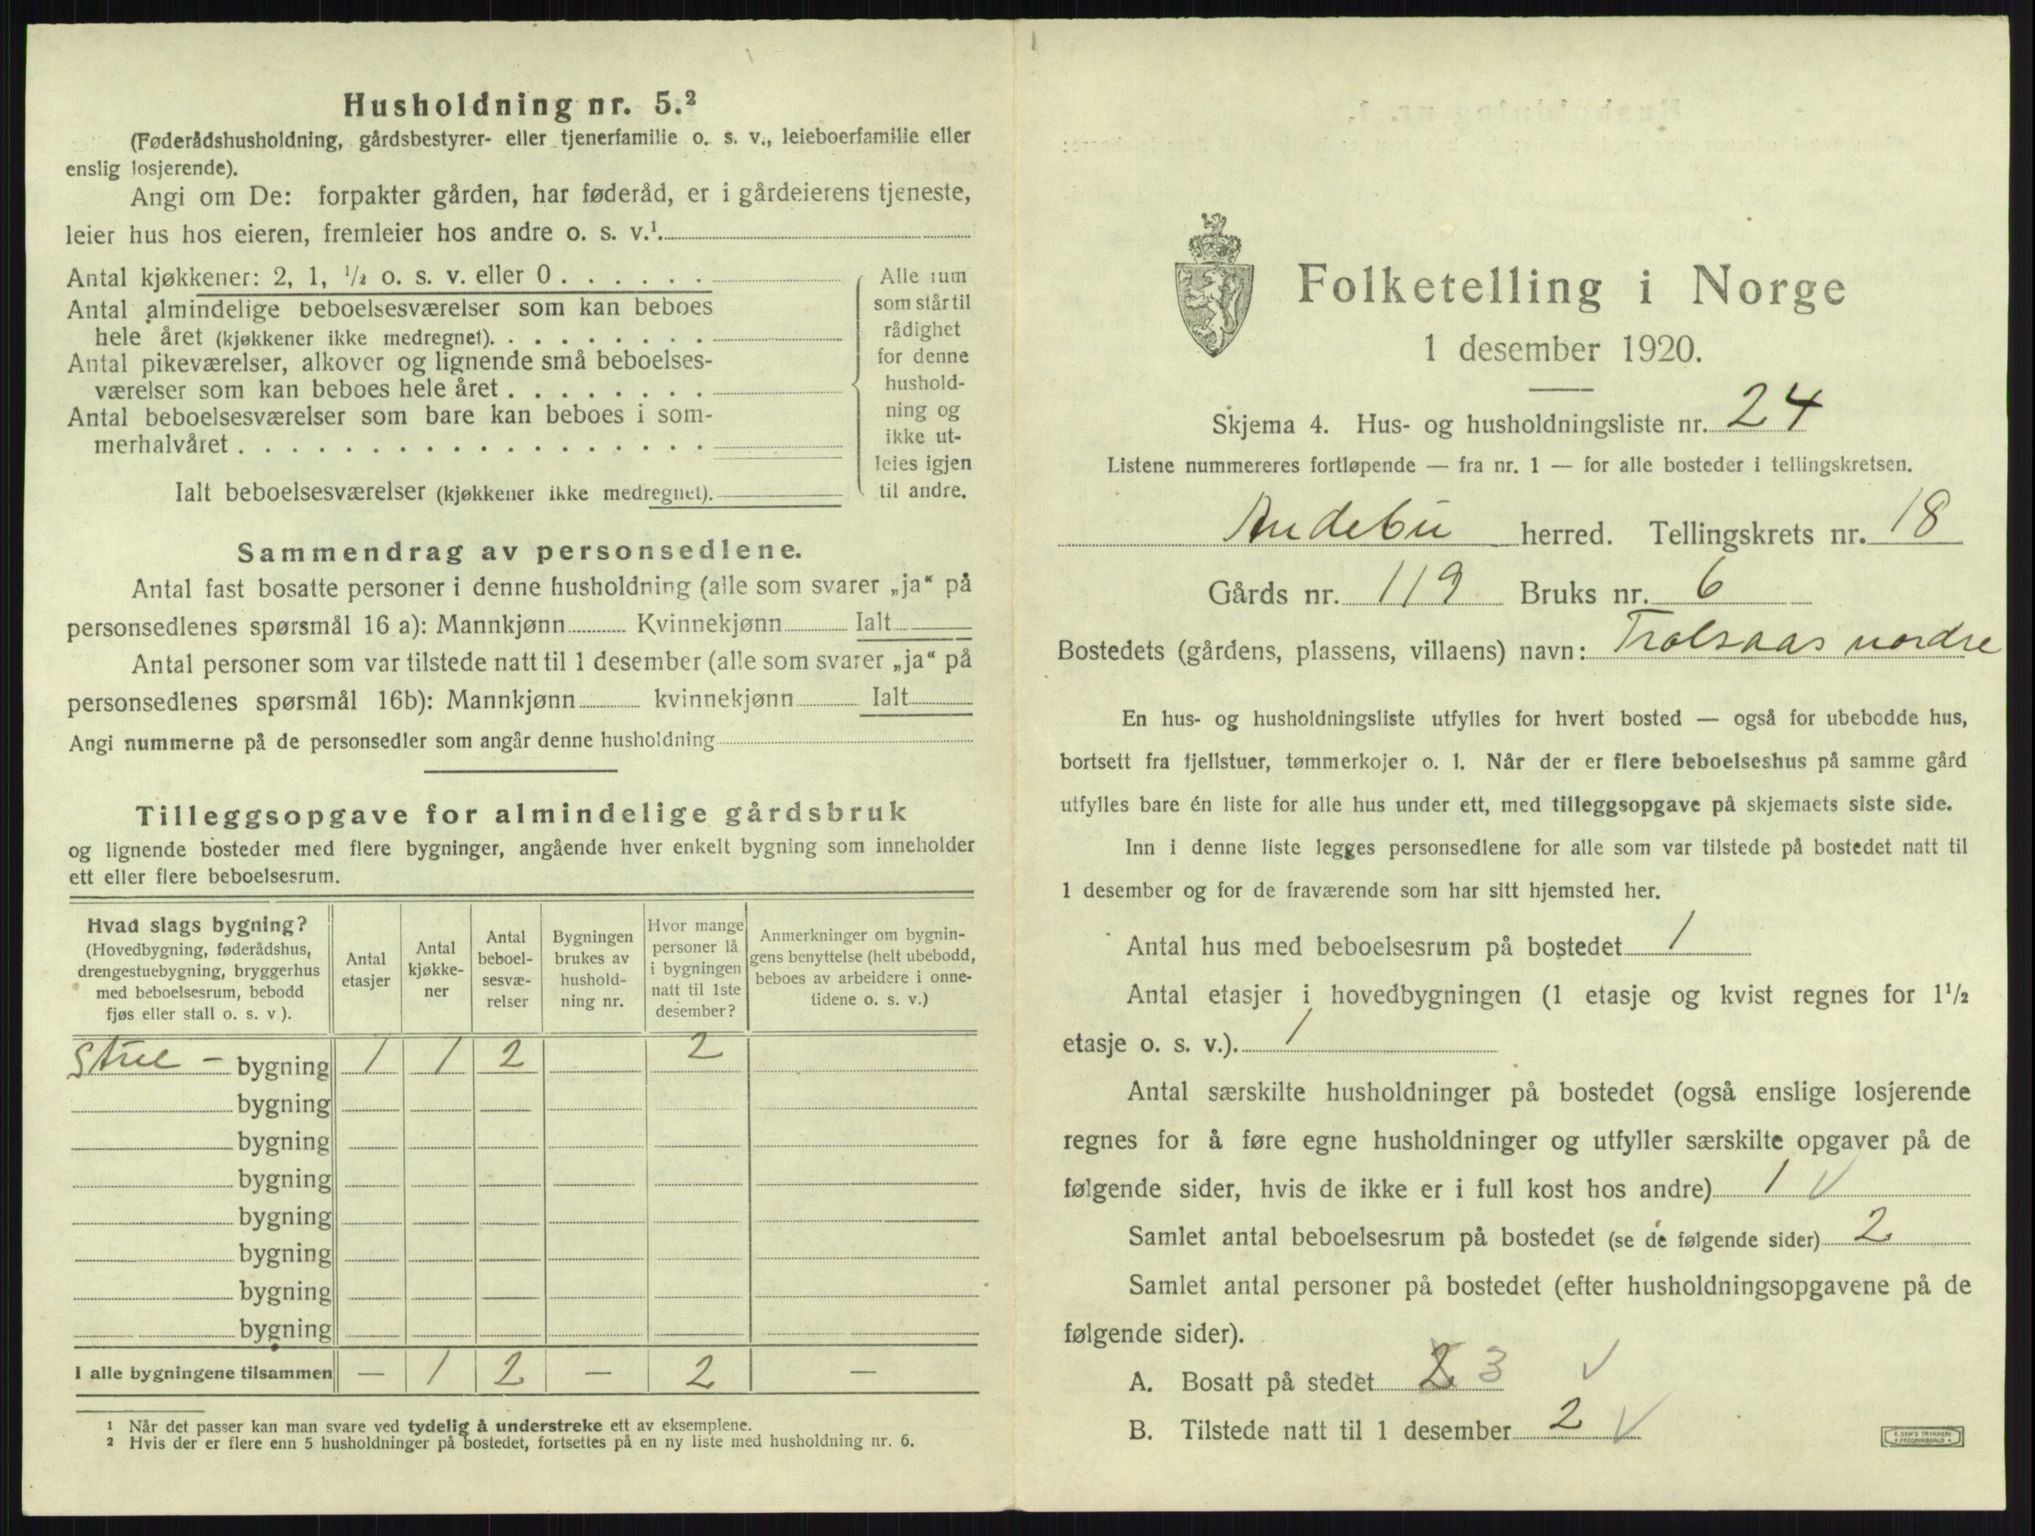 Husholdning nr. 5.²
(Føderådshusholdning, gårdsbestyrer- eller tjenerfamilie o. s. v., leieboerfamilie eller
enslig losjerende).
Angi om De: forpakter gården, har føderåd, er i gårdeierens tjeneste,
leier hus hos eieren, fremleier hos andre o. s. v.¹
Antal kjøkkener: 2, 1, ½ o. s. v. eller 0 . . . . . .
Antal almindelige beboelsesværelser som kan beboes
hele året (kjøkkener ikke medregnet). . . . . . . . .
Antal pikeværelser, alkover og lignende små beboelses-
værelser som kan beboes hele året . . . . . . . .
Antal beboelsesværelser som bare kan beboes i som-
merhalvåret . . . . . . . . . . . . . . . . . .
Ialt beboelsesværelser (kjøkkener ikke medregnet).
Alle rum
som står til
rådighet
for denne
hushold-
ning og
ikke ut-
leies igjen
til andre.
Sammendrag av personsedlene.
Antal fast bosatte personer i denne husholdning (alle som svarer „ja“ på
personsedlenes spørsmål 16 a): Mannkjønn Kvinnekjønn Ialt
Antal personer som var tilstede natt til 1 desember (alle som svarer „ja“ på
personsedlenes spørsmål 16b): Mannkjønn kvinnekjønn Ialt
Angi nummerne på de personsedler som angår denne husholdning
Tilleggsopgave for almindelige gårdsbruk
og lignende bosteder med flere bygninger, angående hver enkelt bygning som inneholder
ett eller flere beboelsesrum.
Hvad slags bygning?
(Hovedbygning, føderådshus,
drengestuebygning, bryggerhus
med beboelsesrum, bebodd
fjøs eller stall o. s. v ).
Antal
etasjer
Antal
kjøkke-
ner
Antal
beboel-
sesvæ-
relser
Bygningen
brukes av
hushold-
ning nr.
Hvor mange
personer lå
i bygningen
natt til 1ste
desember?
Anmerkninger om bygnin-
gens benyttelse (helt ubebodd,
beboes av arbeidere i onne-
tidene o. s. v.)
Stue - bygning 1 1 2 2
bygning
bygning
bygning
bygning
bygning
bygning
bygning
I alle bygningene tilsammen — 1 2 — 2 —
¹ Når det passer kan man svare ved tydelig å understreke ett av eksemplene.
² Hvis der er flere enn 5 husholdninger på bostedet, fortsettes på en ny liste med husholdning nr. 6.
Folketelling i Norge
1 desember 1920.
Skjema 4. Hus- og husholdningsliste nr. 24
Listene nummereres fortløpende — fra nr. 1 — for alle bosteder i tellingskretsen.
Andebu herred. Tellingskrets nr. 18
Gårds nr. 119 Bruks nr. 6
Bostedets (gårdens, plassens, villaens) navn: Trolsaas nordre
En hus- og husholdningsliste utfylles for hvert bosted — også for ubebodde hus,
bortsett fra fjellstuer, tømmerkojer o. l. Når der er flere beboelseshus på samme gård
utfylles bare én liste for alle hus under ett, med tilleggsopgave på skjemaets siste side.
Inn i denne liste legges personsedlene for alle som var tilstede på bostedet natt til
1 desember og for de fraværende som har sitt hjemsted her.
Antal hus med beboelsesrum på bostedet 1
Antal etasjer i hovedbygningen (1 etasje og kvist regnes for 1½
etasje o. s. v.). 1
Antal særskilte husholdninger på bostedet (også enslige losjerende
regnes for å føre egne husholdninger og utfyller særskilte opgaver på de
følgende sider, hvis de ikke er i full kost hos andre) 1 ✓
Samlet antal beboelsesrum på bostedet (se de følgende sider) 2
Samlet antal personer på bostedet (efter husholdningsopgavene på de
følgende sider).
A. Bosatt på stedet 2 3 ✓
B. Tilstede natt til 1 desember 2 ✓